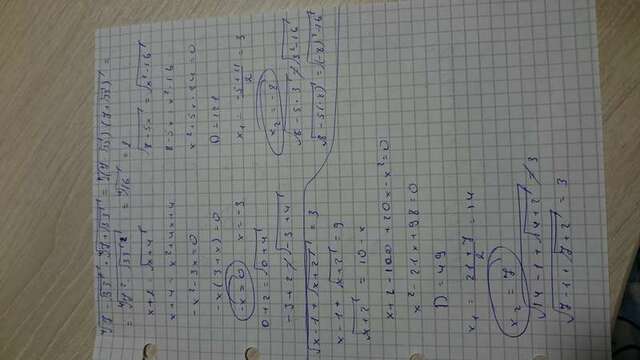 ⁴√(7 - √33) · ⁴√(7 + √33) = ⁴√((7 - √33)(7 + √33)) =
= ⁴√(7² - √33²) = ⁴√16 = 2
x + 2 = √(x + 4)
x + 4 = x² + 4x + 4
-x² - 3x = 0
-x(3 + x) = 0
-x = 0 x = -3
0 + 2 = √(0 + 4)
-3 + 2 ≠ √(-3 + 4)
√(8 - 5x) = √(x² - 16)
8 - 5x = x² - 16
x² + 5x - 24 = 0
D = 121
x₁ = (-5 + 11)/2 = 3
x₂ = -8
√(8 - 5 · 3) ≠ √(3² - 16)
√(8 - 5(-8)) = √((-8)² - 16)
√(x - 1 + √(x + 2)) = 3
x - 1 + √(x + 2) = 9
√(x + 2) = 10 - x
x + 2 - 100 + 20x - x² = 0
x² - 21x + 98 = 0
D = 49
x₁ = (21 + 7)/2 = 14
x₂ = 7
√(14 - 1 + √(14 + 2)) ≠ 3
√(7 - 1 + √(7 + 2)) = 3